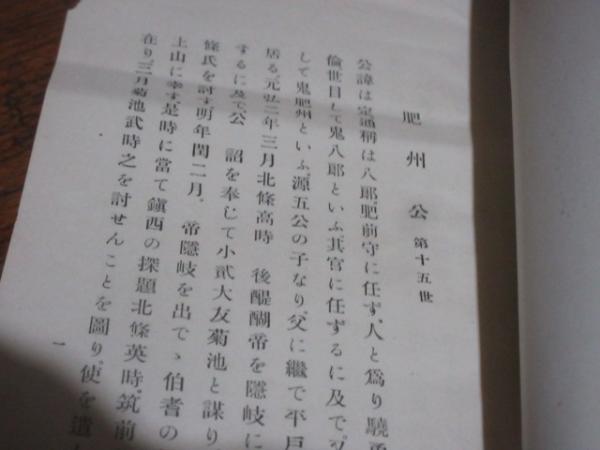 肥州公 第十五世
公諱は定通稱は八郎肥前守に任す、人と爲り驍勇
倫世目して鬼八郎といふ其官に任するに及で
して鬼肥州といふ源五公の子なり、父に繼で平戸
居る、元弘二年三月北條高時 後醍醐帝を隱岐に
するに及て、公 詔を奉じて小貳大友菊池と謀り
條氏を討す、明年閏二月、 帝隱岐を出でゝ伯耆の
上山に幸す、是時に當て鎭西の探題北條英時、筑前
在り、三月菊池武時之を討せんことを圖り、使を遣
一